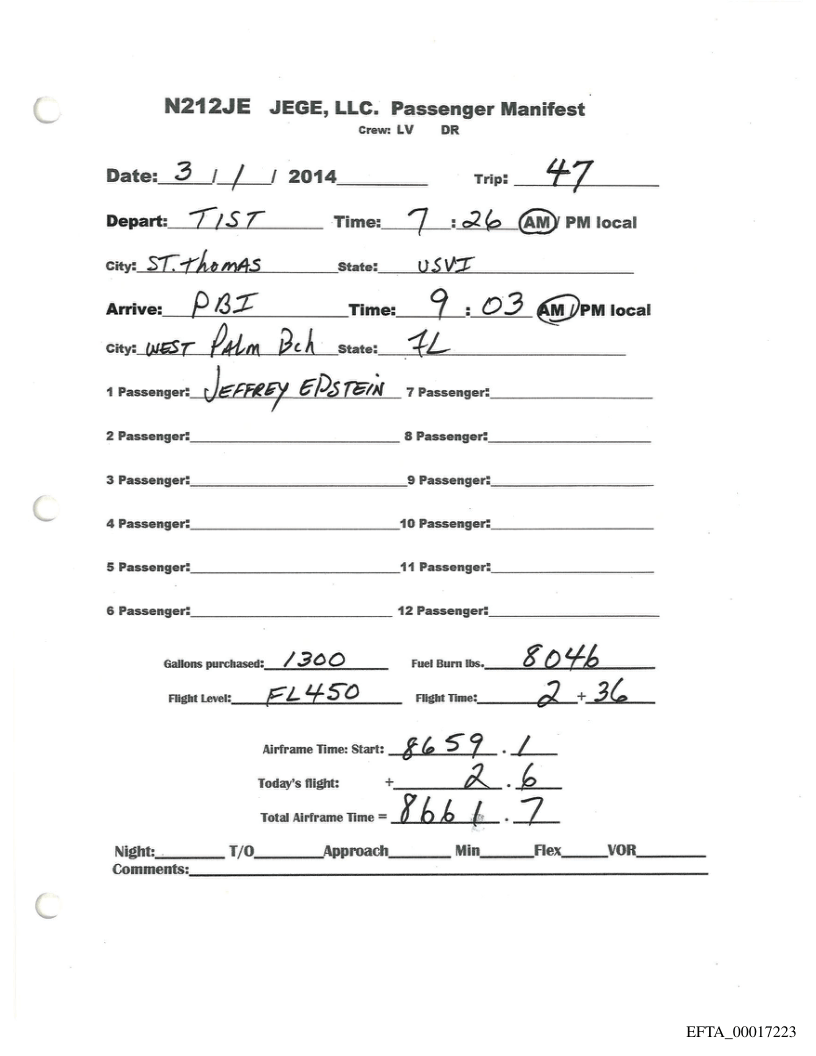 N212JE JEGE, LLC. Passenger Manifest
Crew: LV DR
Date: 3 / 1 / 2014 Trip: 47
Depart: TIST Time: 7 : 26 AM/ PM local
City: ST. Thomas State: USVI
Arrive: PBI Time: 9 : 03 AM/PM local
City: WEST PAlm Bch State: FL
1 Passenger: JEFFREY EPSTEIN 7 Passenger:
2 Passenger: 8 Passenger:
3 Passenger: 9 Passenger:
4 Passenger: 10 Passenger:
5 Passenger: 11 Passenger:
6 Passenger: 12 Passenger:
Gallons purchased: 1300 Fuel Burn lbs. 8046
Flight Level: FL450 Flight Time: 2 + 36
Airframe Time: Start: 8659 . 1
Today's flight: + 2 . 6
Total Airframe Time = 8661 . 7
Night: T/O Approach Min Flex VOR
Comments:
EFTA_00017223